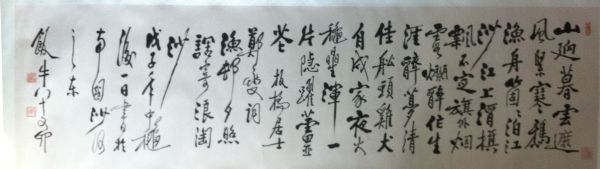 山迥暮雲遮
風緊寒鴉
漁舟箇箇泊江
沙江上酒旗
飄不定旗外烟
霞爛醉作生
涯醉夢清
佳船頭雞犬
自成家夜火
穐星渾一
片隱躍蘆
花 板橋居士
鄭燮詞
漁邨夕照
調寄浪淘
沙
戊子年中穐
後一日書於
南國沙河
之東
飯牛八十又